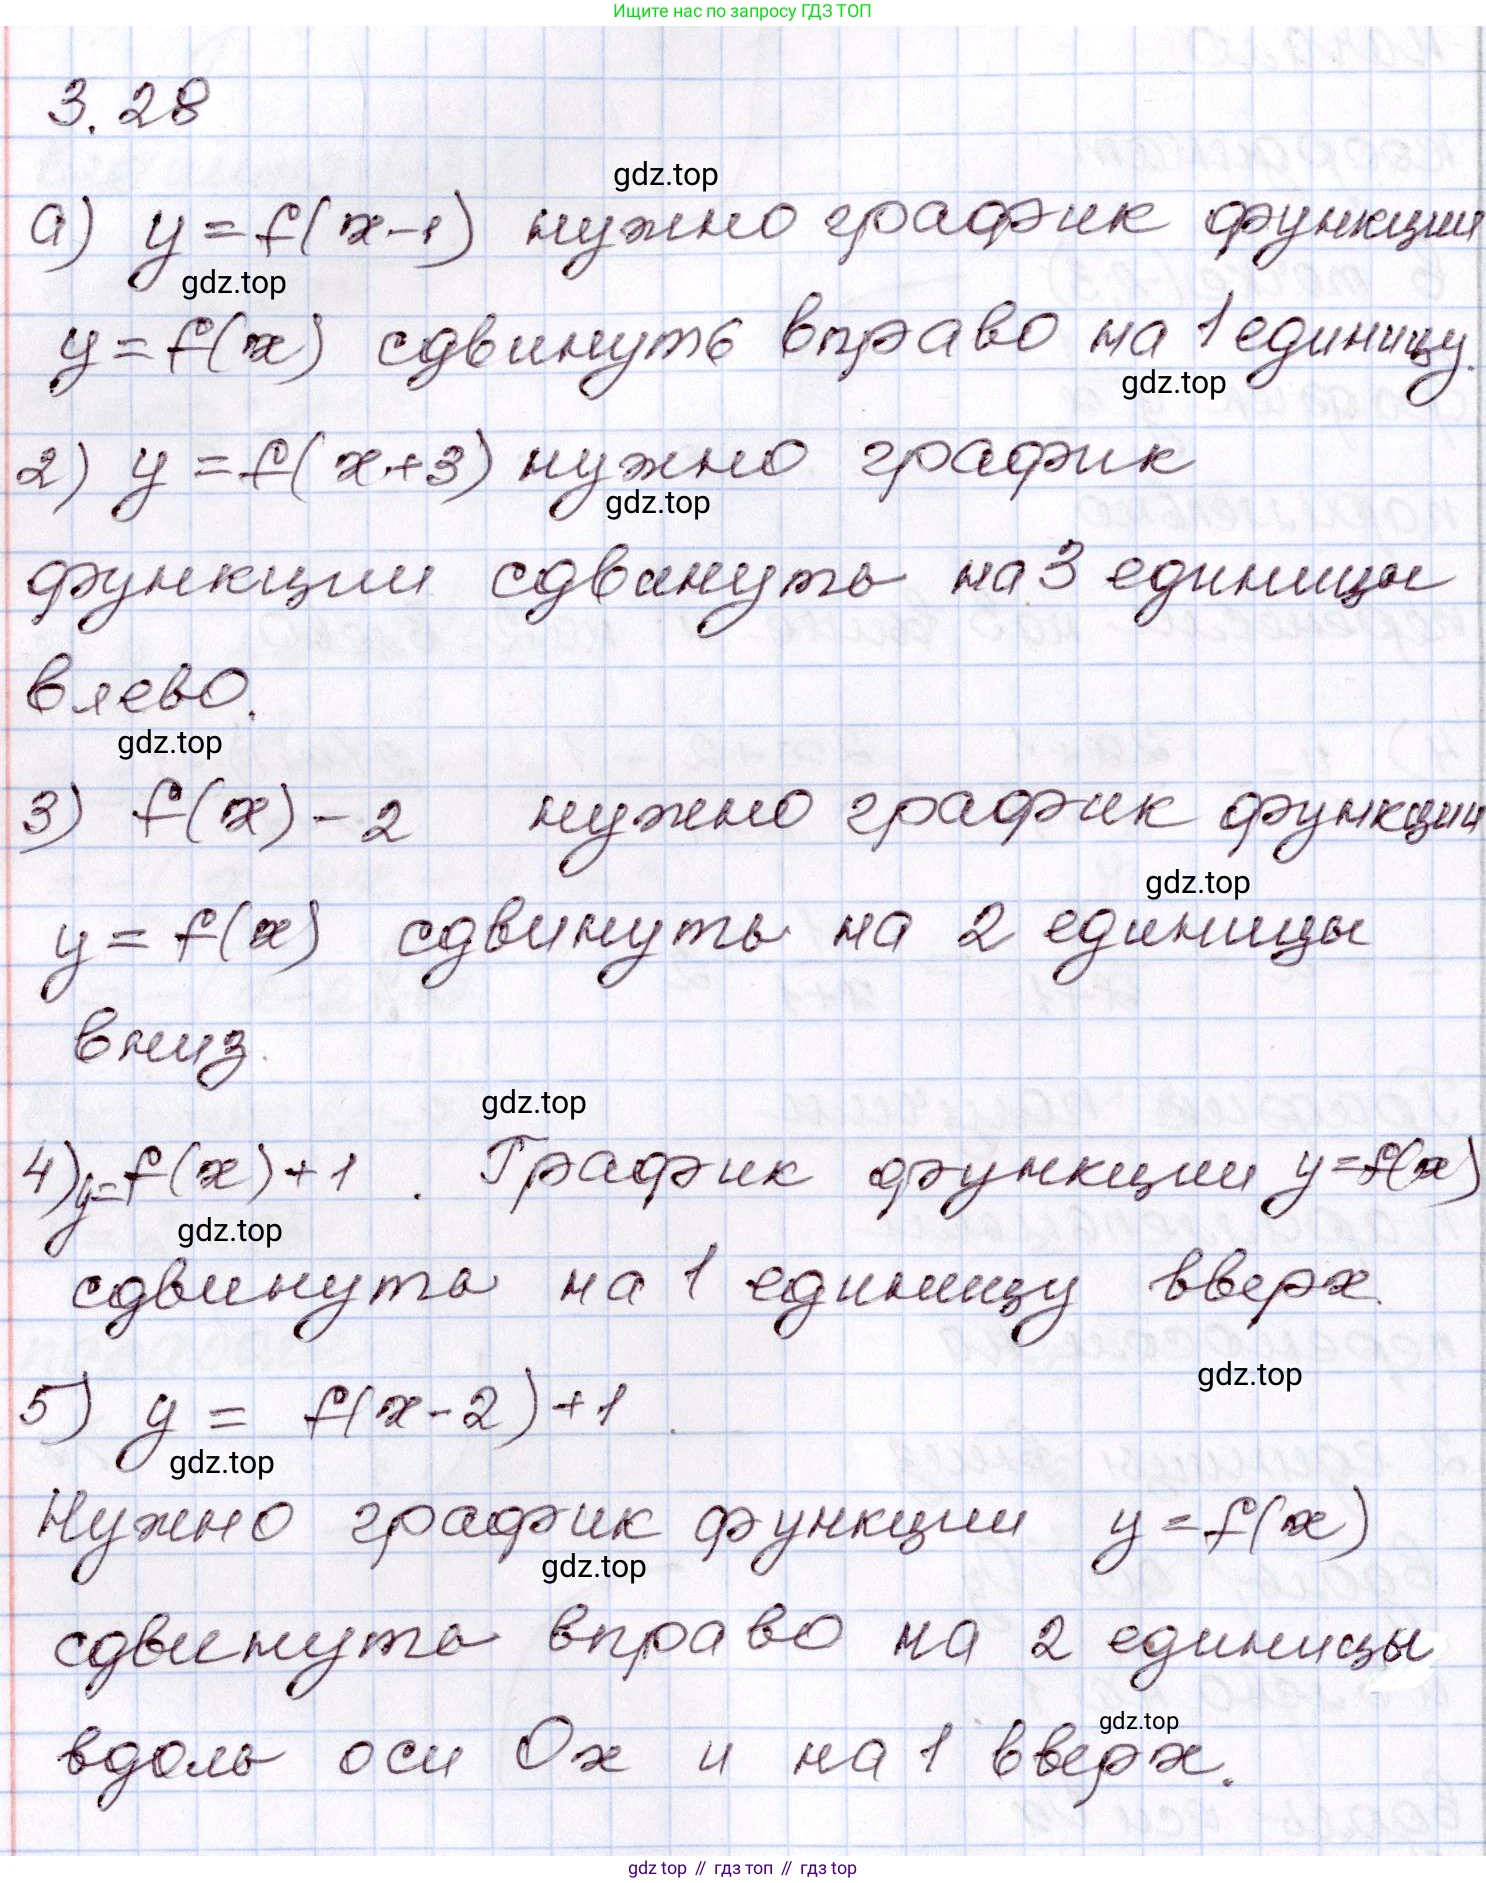 Ищите нас по запросу ГДЗ ТОП
3.28
gdz.top
а) y = f(x-1) нужно график функции
gdz.top
y = f(x) сдвинуть вправо на 1 единицу.
gdz.top
2) y = f(x+3) нужно график
gdz.top
функции сдвинуть на 3 единицы
влево.
gdz.top
3) f(x) - 2 нужно график функции
gdz.top
y = f(x) сдвинуть на 2 единицы
вниз.
gdz.top
4) y = f(x) + 1 . График функции y = f(x)
gdz.top
сдвинуть на 1 единицу вверх.
gdz.top
5) y = f(x-2) + 1 .
gdz.top
Нужно график функции y = f(x)
gdz.top
сдвинуть вправо на 2 единицы
gdz.top
вдоль оси Ox и на 1 вверх.
gdz top // гдз топ // gdz top